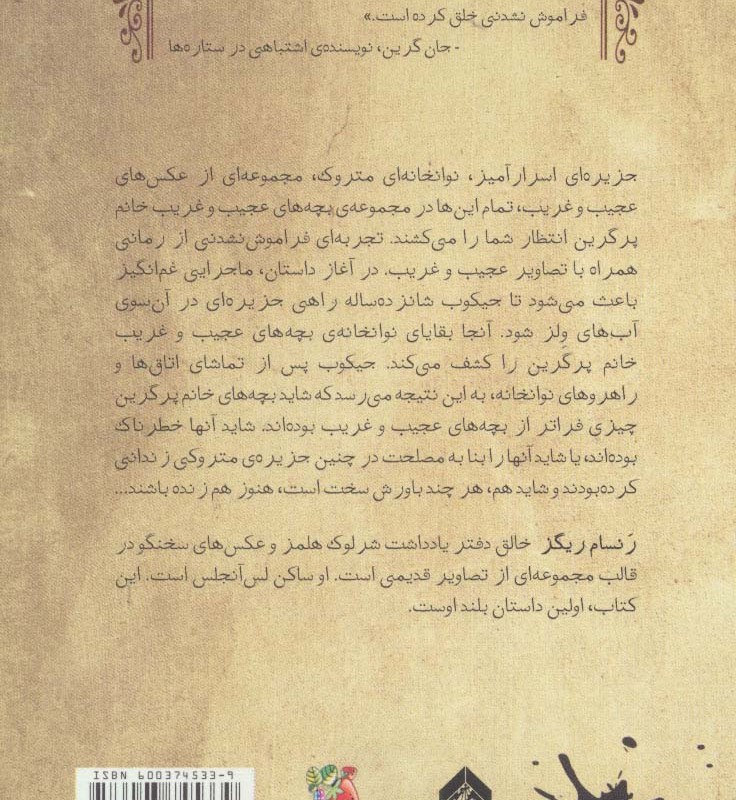 فراموش نشدنی خلق کرده است.»
- جان گرین، نویسنده‌ی اشتباهی در ستاره‌ها
جزیره‌ای اسرارآمیز، نوانخانه‌ای متروک، مجموعه‌ای از عکس‌های
عجیب و غریب، تمام این‌ها در مجموعه‌ی بچه‌های عجیب و غریب خانم
پرگرین انتظار شما را می‌کشند. تجربه‌ای فراموش‌نشدنی از رمانی
همراه با تصاویر عجیب و غریب. در آغاز داستان، ماجرایی غم‌انگیز
باعث می‌شود تا جیکوب شانزده‌ساله راهی جزیره‌ای در آن‌سوی
آب‌های وِلز شود. آنجا بقایای نوانخانه‌ی بچه‌های عجیب و غریب
خانم پرگرین را کشف می‌کند. جیکوب پس از تماشای اتاق‌ها و
راهروهای نوانخانه، به این نتیجه می‌رسد که شاید بچه‌های خانم پرگرین
چیزی فراتر از بچه‌های عجیب و غریب بوده‌اند. شاید آنها خطرناک
بوده‌اند، یا شاید آنها را بنا به مصلحت در چنین جزیره‌ی متروکی زندانی
کرده‌بودند و شاید هم، هر چند باورش سخت است، هنوز هم زنده باشند...
رَنسام ریگز خالق دفتر یادداشت شرلوک هلمز و عکس‌های سخنگو در
قالب مجموعه‌ای از تصاویر قدیمی است. او ساکن لس‌آنجلس است. این
کتاب، اولین داستان بلند اوست.
ISBN 600374533-9